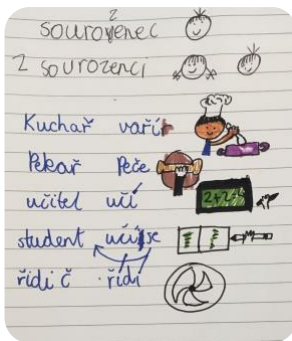 sourozenec
2 sourozenci
Kuchař vaří
Pekař Peče
učitel učí 2+2=4
student učí se
řidič řídí